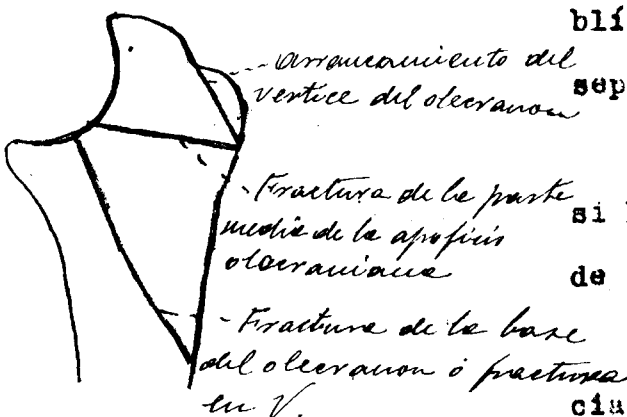 blí
- arrancamiento del
vertice del olecranon
sep
- Fractura de la parte
media de la apofisis
olocraniana
si
de
- Fractura de la base
del olecranon ó fractura
en V.
cia